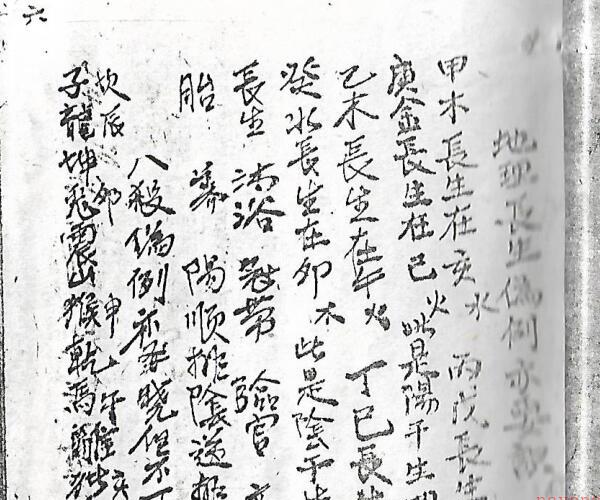 地理長生偽例亦要
甲木長生在亥水 丙戊長生
庚金長生在巳火 此是陽干生
乙木長生在午火 丁己長生
癸水長生在卯木 此是陰干
長生 沐浴 冠帶 臨官
胎 養 陽順排陰逆
八殺偽例亦要曉但不
坎辰 卯 申 午
子龍坤兔震山猴乾馬離
六